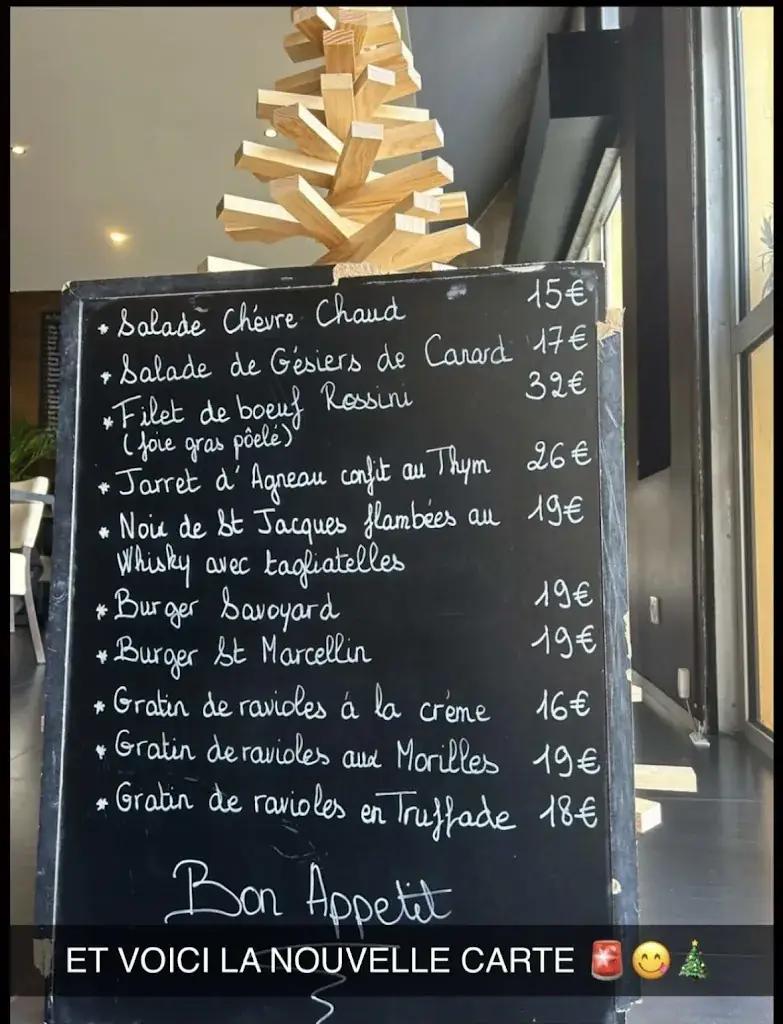 * Salade Chévre Chaud 15€
* Salade de Gésiers de Canard 17€
* Filet de boeuf Rossini 32€
(foie gras pôelé)
* Jarret d'Agneau confit au Thym 26€
* Noix de St Jacques flambées au 19€
Whisky avec tagliatelles
* Burger Savoyard 19€
* Burger St Marcellin 19€
* Gratin de ravioles á la crème 16€
* Gratin de ravioles aux Morilles 19€
* Gratin de ravioles en Truffade 18€
Bon Appetit
ET VOICI LA NOUVELLE CARTE 🚨😋🎄